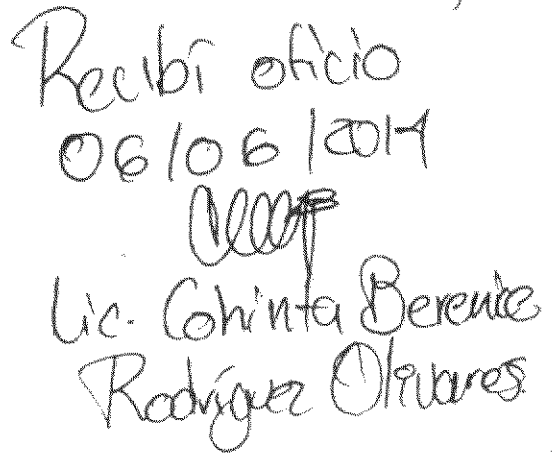 Recibí oficio
06/06/2014
Lic. Cohinta Berenice
Rodríguez Olivares